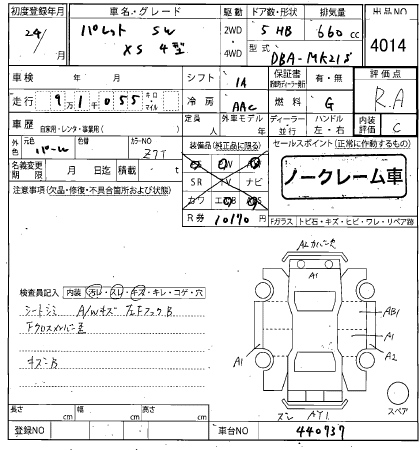 初度登録年月 車名・グレード 駆動 ドア数・形状 排気量 出品NO
24/ 月 パレット SW 2WD 5 HB 660 cc 4014
XS 4型 4WD 型式 DBA-MK21S
車検 年 月 シフト IA 保証書 有・無 評価点
走行 9万1千055 キロ マイル 冷房 AAC 燃料 G R.A
車歴 自家用・レンタ・事業用( ) 定員 人 外車モデル 年 ディーラー 並行 ハンドル 左・右 内装評価 C
外色 元色 パール カラーNO Z7T 装備品(純正品に限る) セールスポイント(正常に作動するもの)
名義変更期限 月 日迄 積載 t SR TV ナビ ノークレーム車
注意事項(欠品・修復・不具合箇所および状態) カワ
R券 10170円 Fガラス トビ石・キズ・ヒビ・ワレ・リペア跡
A1
検査員記入 内装 汚レ・スレ・キズ・キレ・コゲ・穴
シートシミ A/Wキズ
AB1
A1
A1 A2
キズ
スペア
長さ cm 幅 cm 高さ cm AY1
登録NO 車台NO 440737